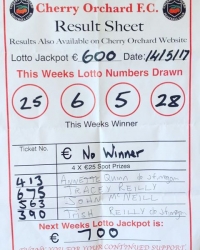 Cherry Orchard F.C.
Result Sheet
Results Also Available on Cherry Orchard Website
Lotto Jackpot € 600 Date: 14/5/17
This Weeks Lotto Numbers Drawn
25 6 5 28
This Weeks Winner
Ticket No. € No Winner
4 X €25 Spot Prizes
413 Quinn
675 TRACEY REILLY
563 JOHN McNEILL
390 REILLY
Next Weeks Lotto Jackpot is:
€ 700
THANK YOU FOR YOUR CONTINUED SUPPORT